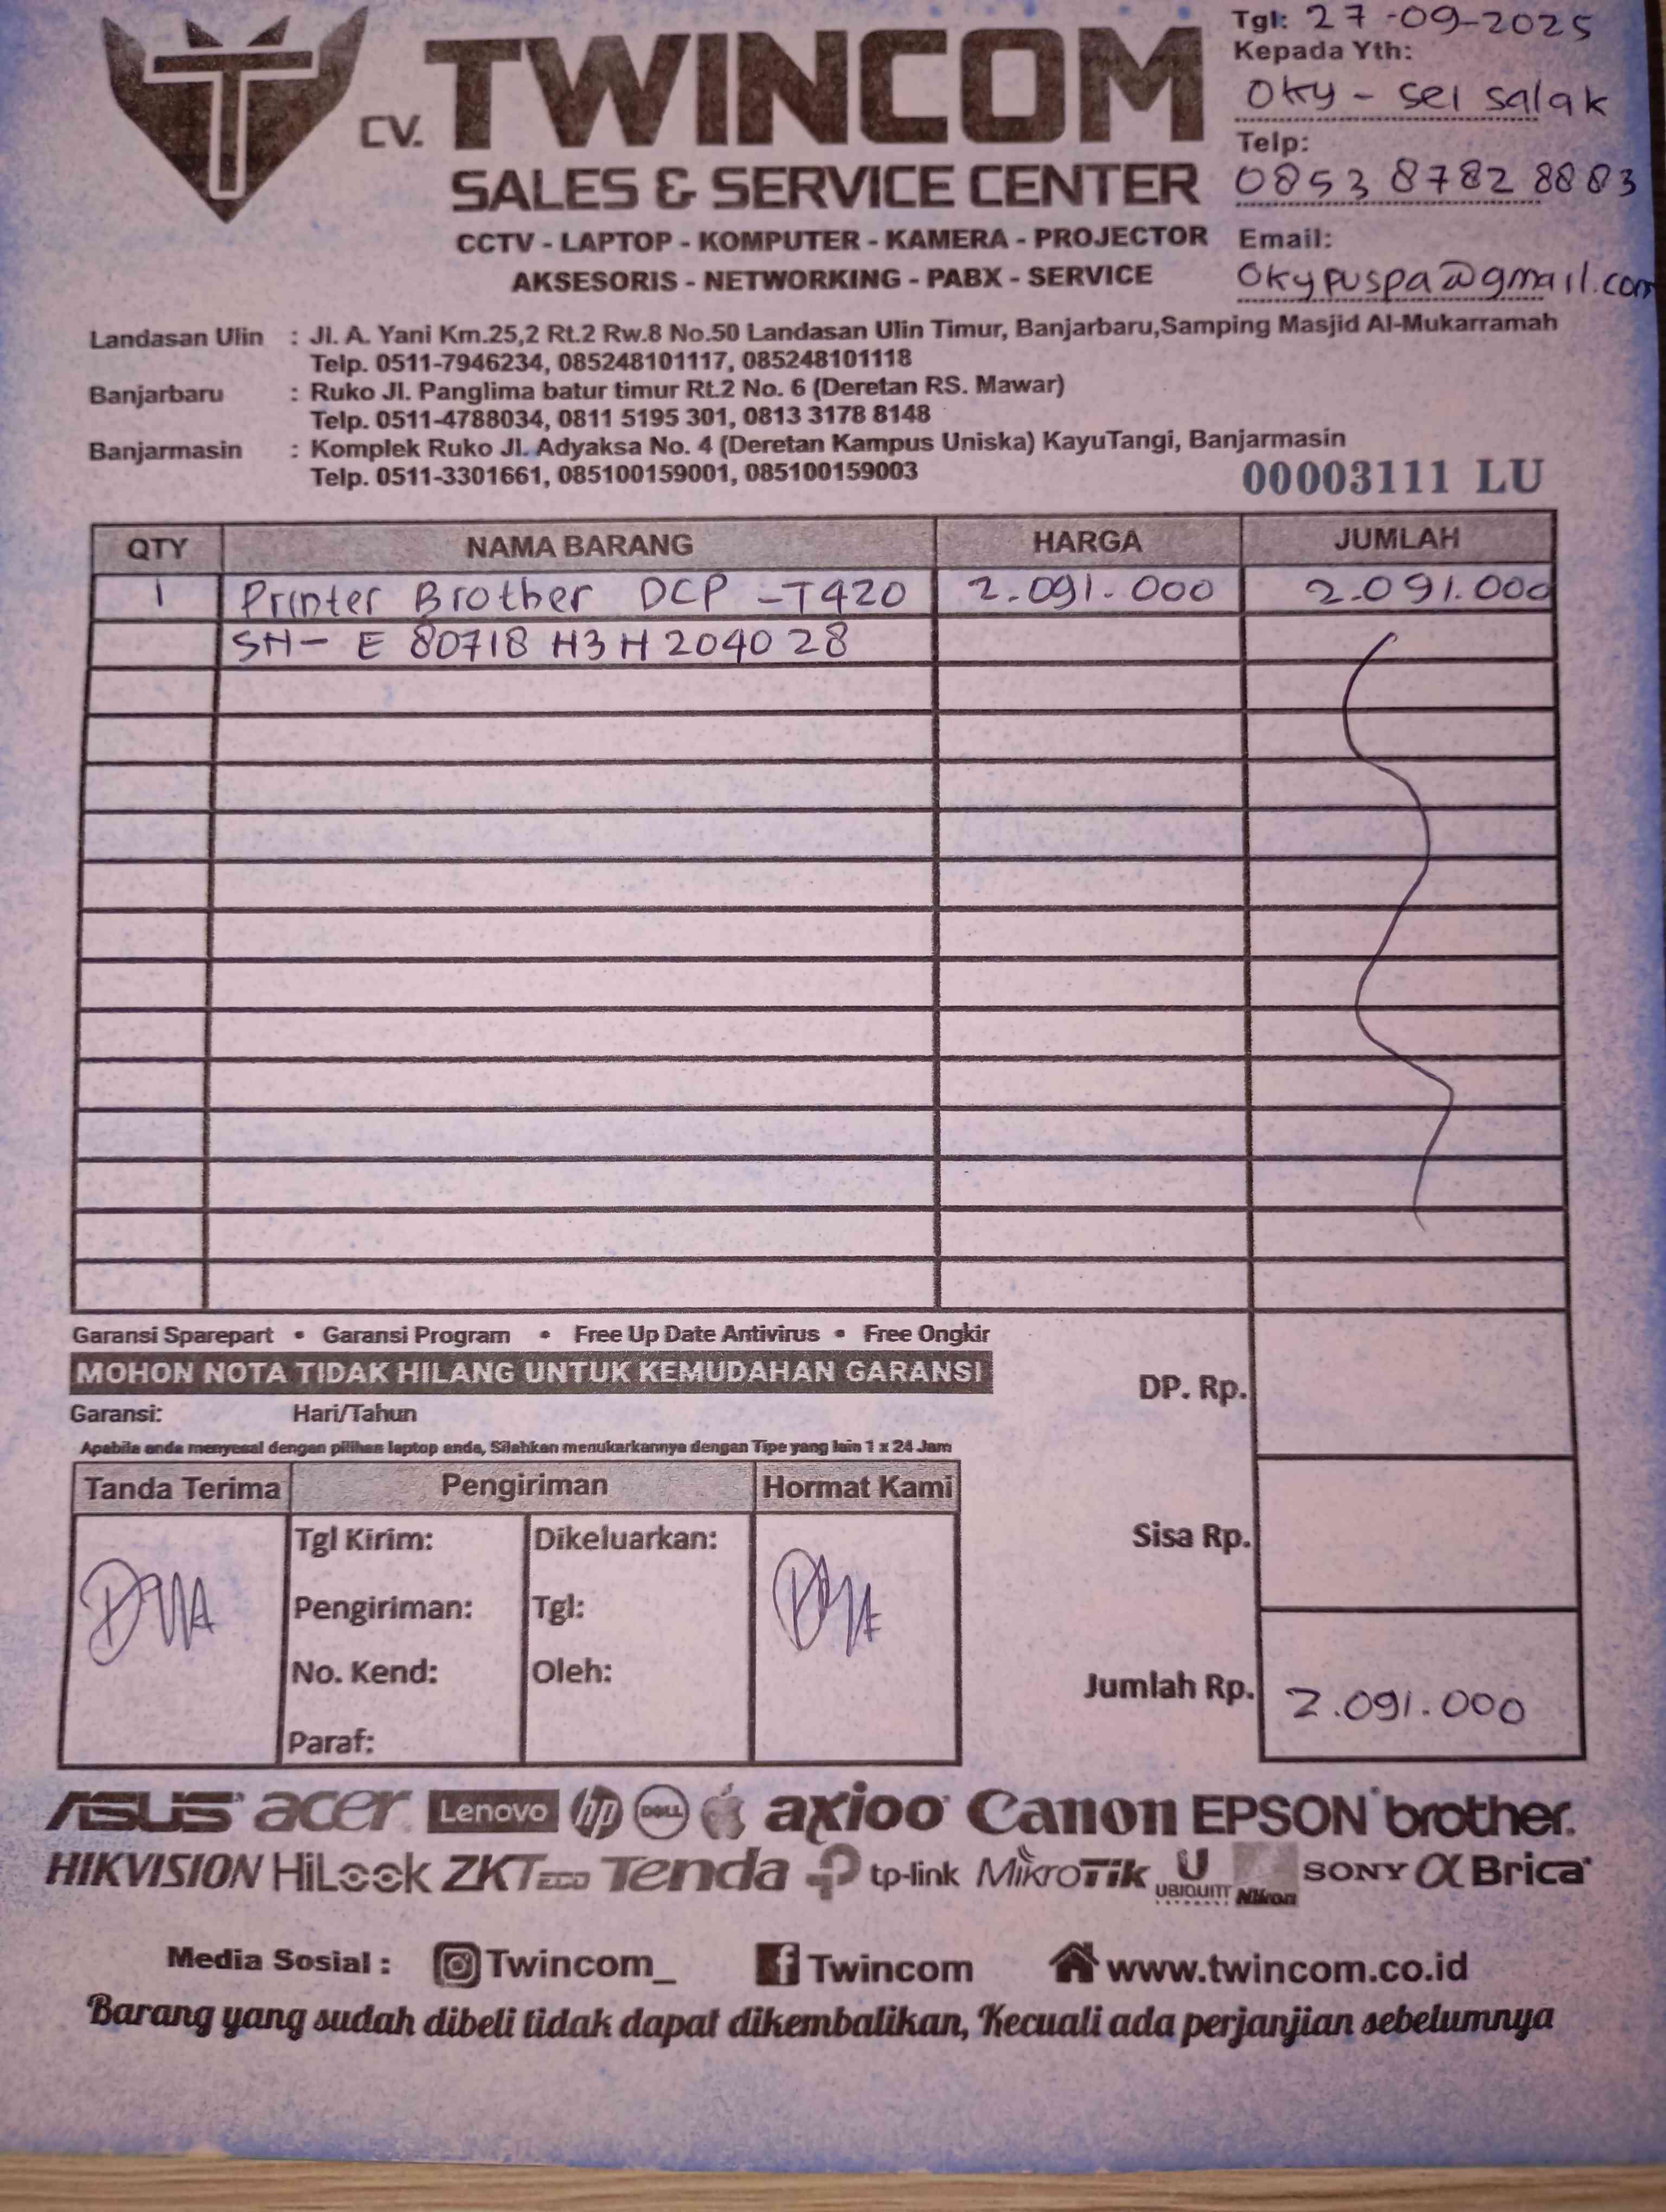 Tgl: 27-09-2025
Kepada Yth:
Oky - sei salak
Telp:
0853 8782 8883
Email:
Okypuspa@gmail.com
CV. TWINCOM
SALES & SERVICE CENTER
CCTV - LAPTOP - KOMPUTER - KAMERA - PROJECTOR
AKSESORIS - NETWORKING - PABX - SERVICE
Landasan Ulin : Jl. A. Yani Km.25,2 Rt.2 Rw.8 No.50 Landasan Ulin Timur, Banjarbaru,Samping Masjid Al-Mukarramah
Telp. 0511-7946234, 085248101117, 085248101118
Banjarbaru : Ruko Jl. Panglima batur timur Rt.2 No. 6 (Deretan RS. Mawar)
Telp. 0511-4788034, 0811 5195 301, 0813 3178 8148
Banjarmasin : Komplek Ruko Jl. Adyaksa No. 4 (Deretan Kampus Uniska) KayuTangi, Banjarmasin
Telp. 0511-3301661, 085100159001, 085100159003
00003111 LU
QTY NAMA BARANG HARGA JUMLAH
1 Printer Brother DCP -T420 2.091.000 2.091.000
SN- E 80718 H3H204028
Garansi Sparepart • Garansi Program • Free Up Date Antivirus • Free Ongkir
MOHON NOTA TIDAK HILANG UNTUK KEMUDAHAN GARANSI
Garansi: Hari/Tahun
Apabila anda menyesal dengan pilihan laptop anda, Silahkan menukarkannya dengan Tipe yang lain 1 x 24 Jam
DP. Rp.
Sisa Rp.
Jumlah Rp. 2.091.000
Tanda Terima Pengiriman Hormat Kami
Tgl Kirim: Dikeluarkan:
Pengiriman: Tgl:
No. Kend: Oleh:
Paraf:
ASUS acer Lenovo hp DELL axioo Canon EPSON brother.
HIKVISION HiLook ZKTeco Tenda tp-link MikroTik UBIQUITI Nikon SONY α Brica
Media Sosial : Twincom_ Twincom www.twincom.co.id
Barang yang sudah dibeli tidak dapat dikembalikan, Kecuali ada perjanjian sebelumnya